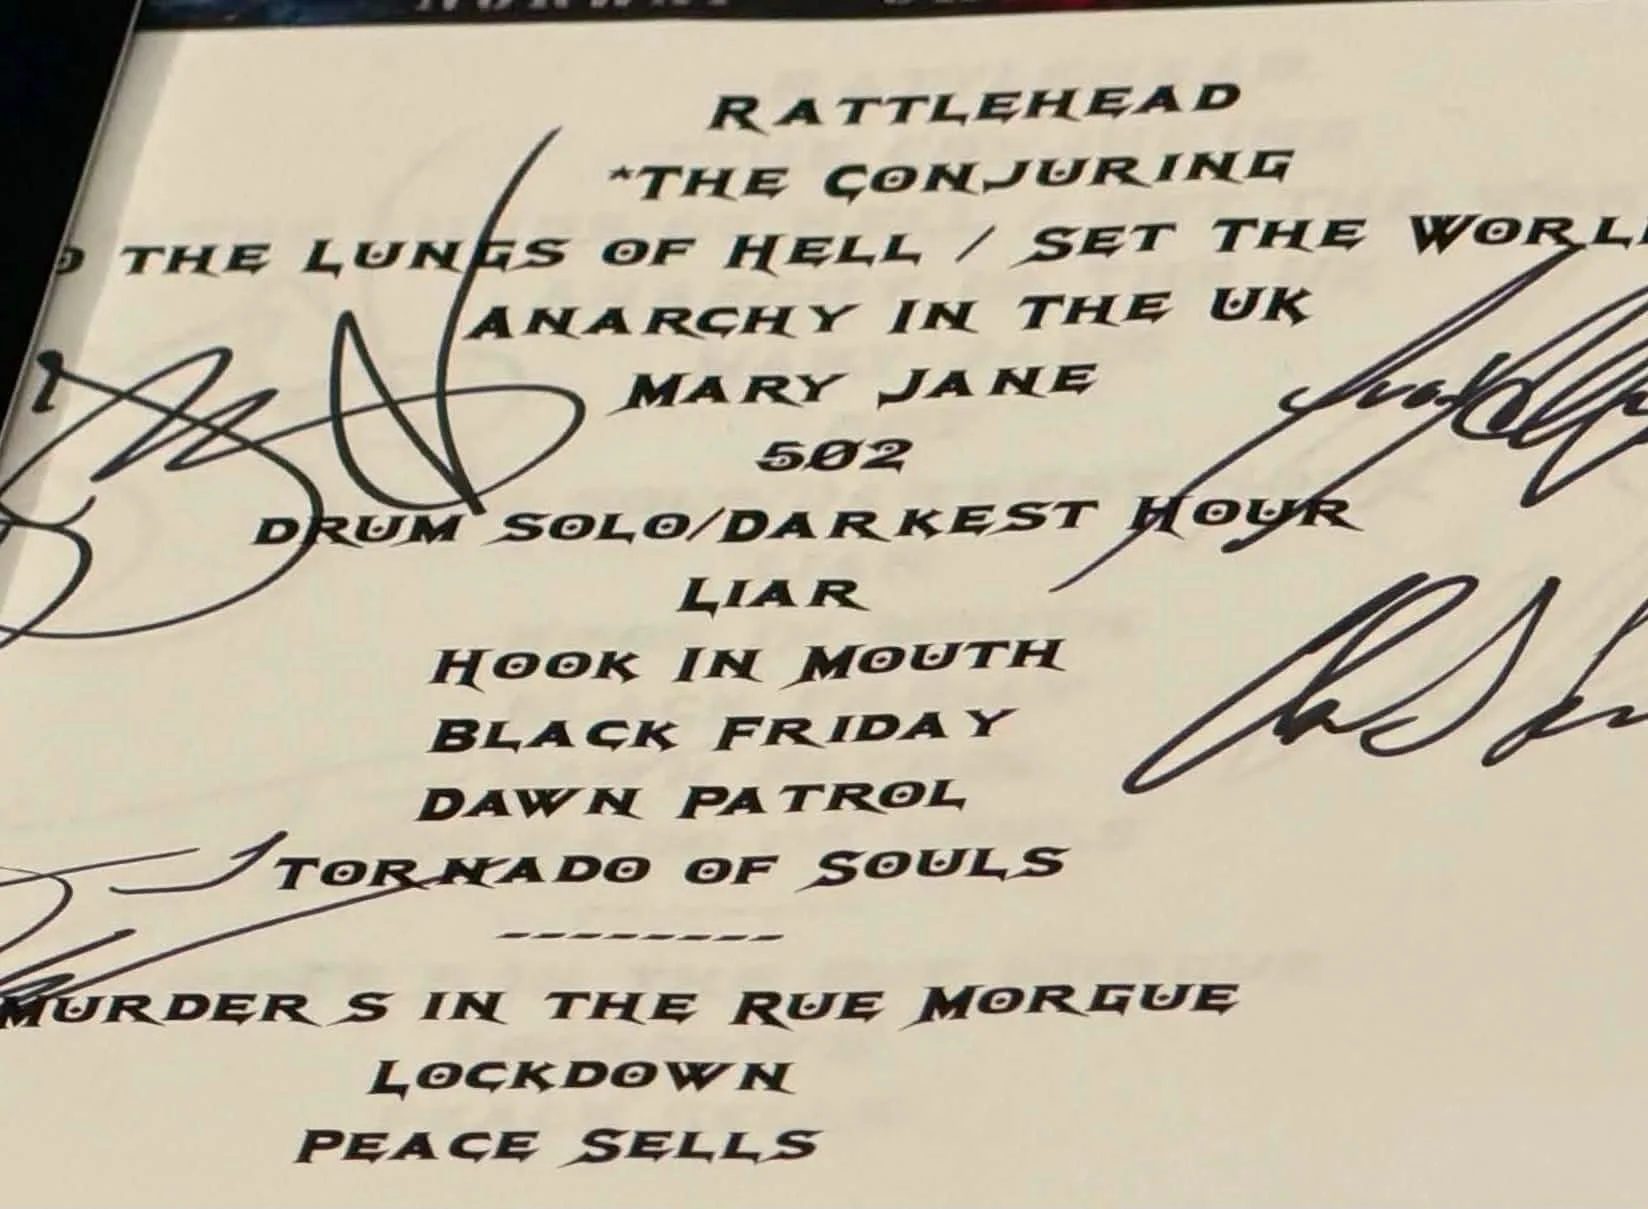 RATTLEHEAD
*THE CONJURING
THE LUNGS OF HELL / SET THE WORL
ANARCHY IN THE UK
MARY JANE
502
DRUM SOLO/DARKEST HOUR
LIAR
HOOK IN MOUTH
BLACK FRIDAY
DAWN PATROL
TORNADO OF SOULS
---------
MURDERS IN THE RUE MORGUE
LOCKDOWN
PEACE SELLS